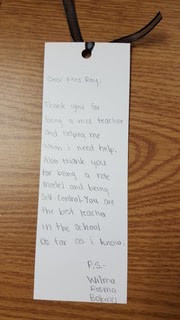 Dear Mrs. Ray,
Thank you for
being a nice teacher
and helping me
when i need help.
Also thank you
for being a role
model and being
Self control. You are
the best teacher
in the school
as far as i know.
P.S.-
Wilma